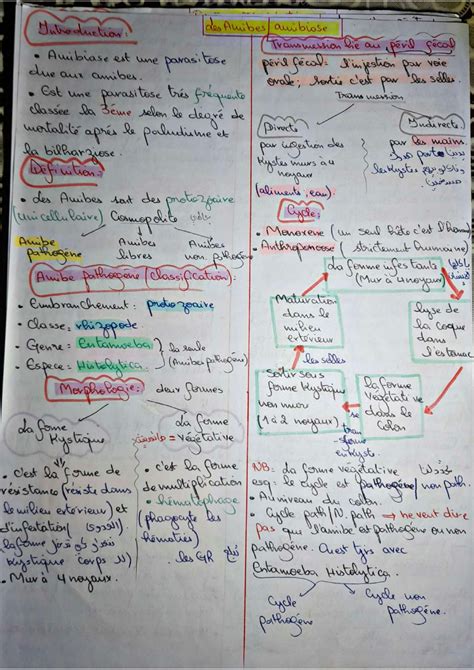 des Amibes amibiase
Introduction:
• Amibiase est une parasitose
due aux amibes.
• Est une parasitose très fréquente
classée la 3ème selon le degré de
mortalité après le paludisme et
la bilharziose.
Définition:
• des Amibes sont des protozoaire
(unicellulaire) Cosmopolite
Amibe pathogène
Amibes libres
Amibes non pathogène
Amibe pathogène (classification):
• Embranchement: protozoaire
• Classe: rhizopode
• Genre: Entamoeba
• Espece: Histolytica
la seule
(Amibes pathogène)
Morphologie: deux formes
La forme Kystique
La forme végétative
• c'est la forme de
résistance (résiste dans
le milieu extérieur) et
d'infestation
la forme
Kystique
• Mur à 4 noyaux.
• c'est la forme
de multiplication
• hématophage
(phagocyte les
hématies)
les GR
Transmission lié au péril fécal
péril fécal: l'injestion par voie
orale; sortie c'est par les selles.
Transmission
Directe
par ingestion des
Kystes murs à 4
noyaux
(aliments, eau).
Indirecte
par les mains
les Kystes
Cycle:
• Monoxène (un seul hôte c'est l'homme
• Anthroponose (strictement humaine)
La forme infestante
(Mur à 4 noyaux)
lyse de
la coque
dans
l'estomac
la forme
végétative
dans le
Colon
sortir sous
forme Kystique
non mur
(1 à 2 noyaux)
les selles
Maturation
dans le
milieu
extérieur
NB: la forme végétative
le cycle et pathogène / non path.
• Au niveau du colon.
• Cycle path / N. path → ne veut dire
pas que l'amibe est pathogène ou non
pathogène. On est tjrs avec
Entamoeba Histolytica.
Cycle pathogène
Cycle non pathogène.